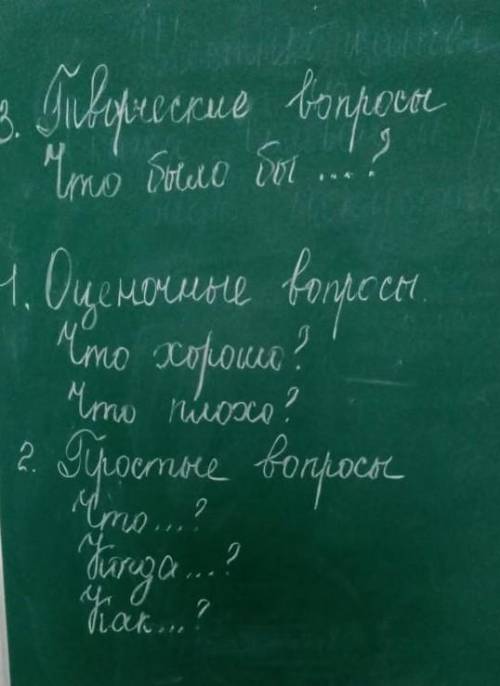 3. Творческие вопросы
Что было бы ....?
1. Оценочные вопросы.
Что хорошо?
Что плохо?
2. Простые вопросы
Что...?
Когда...?
Как...?